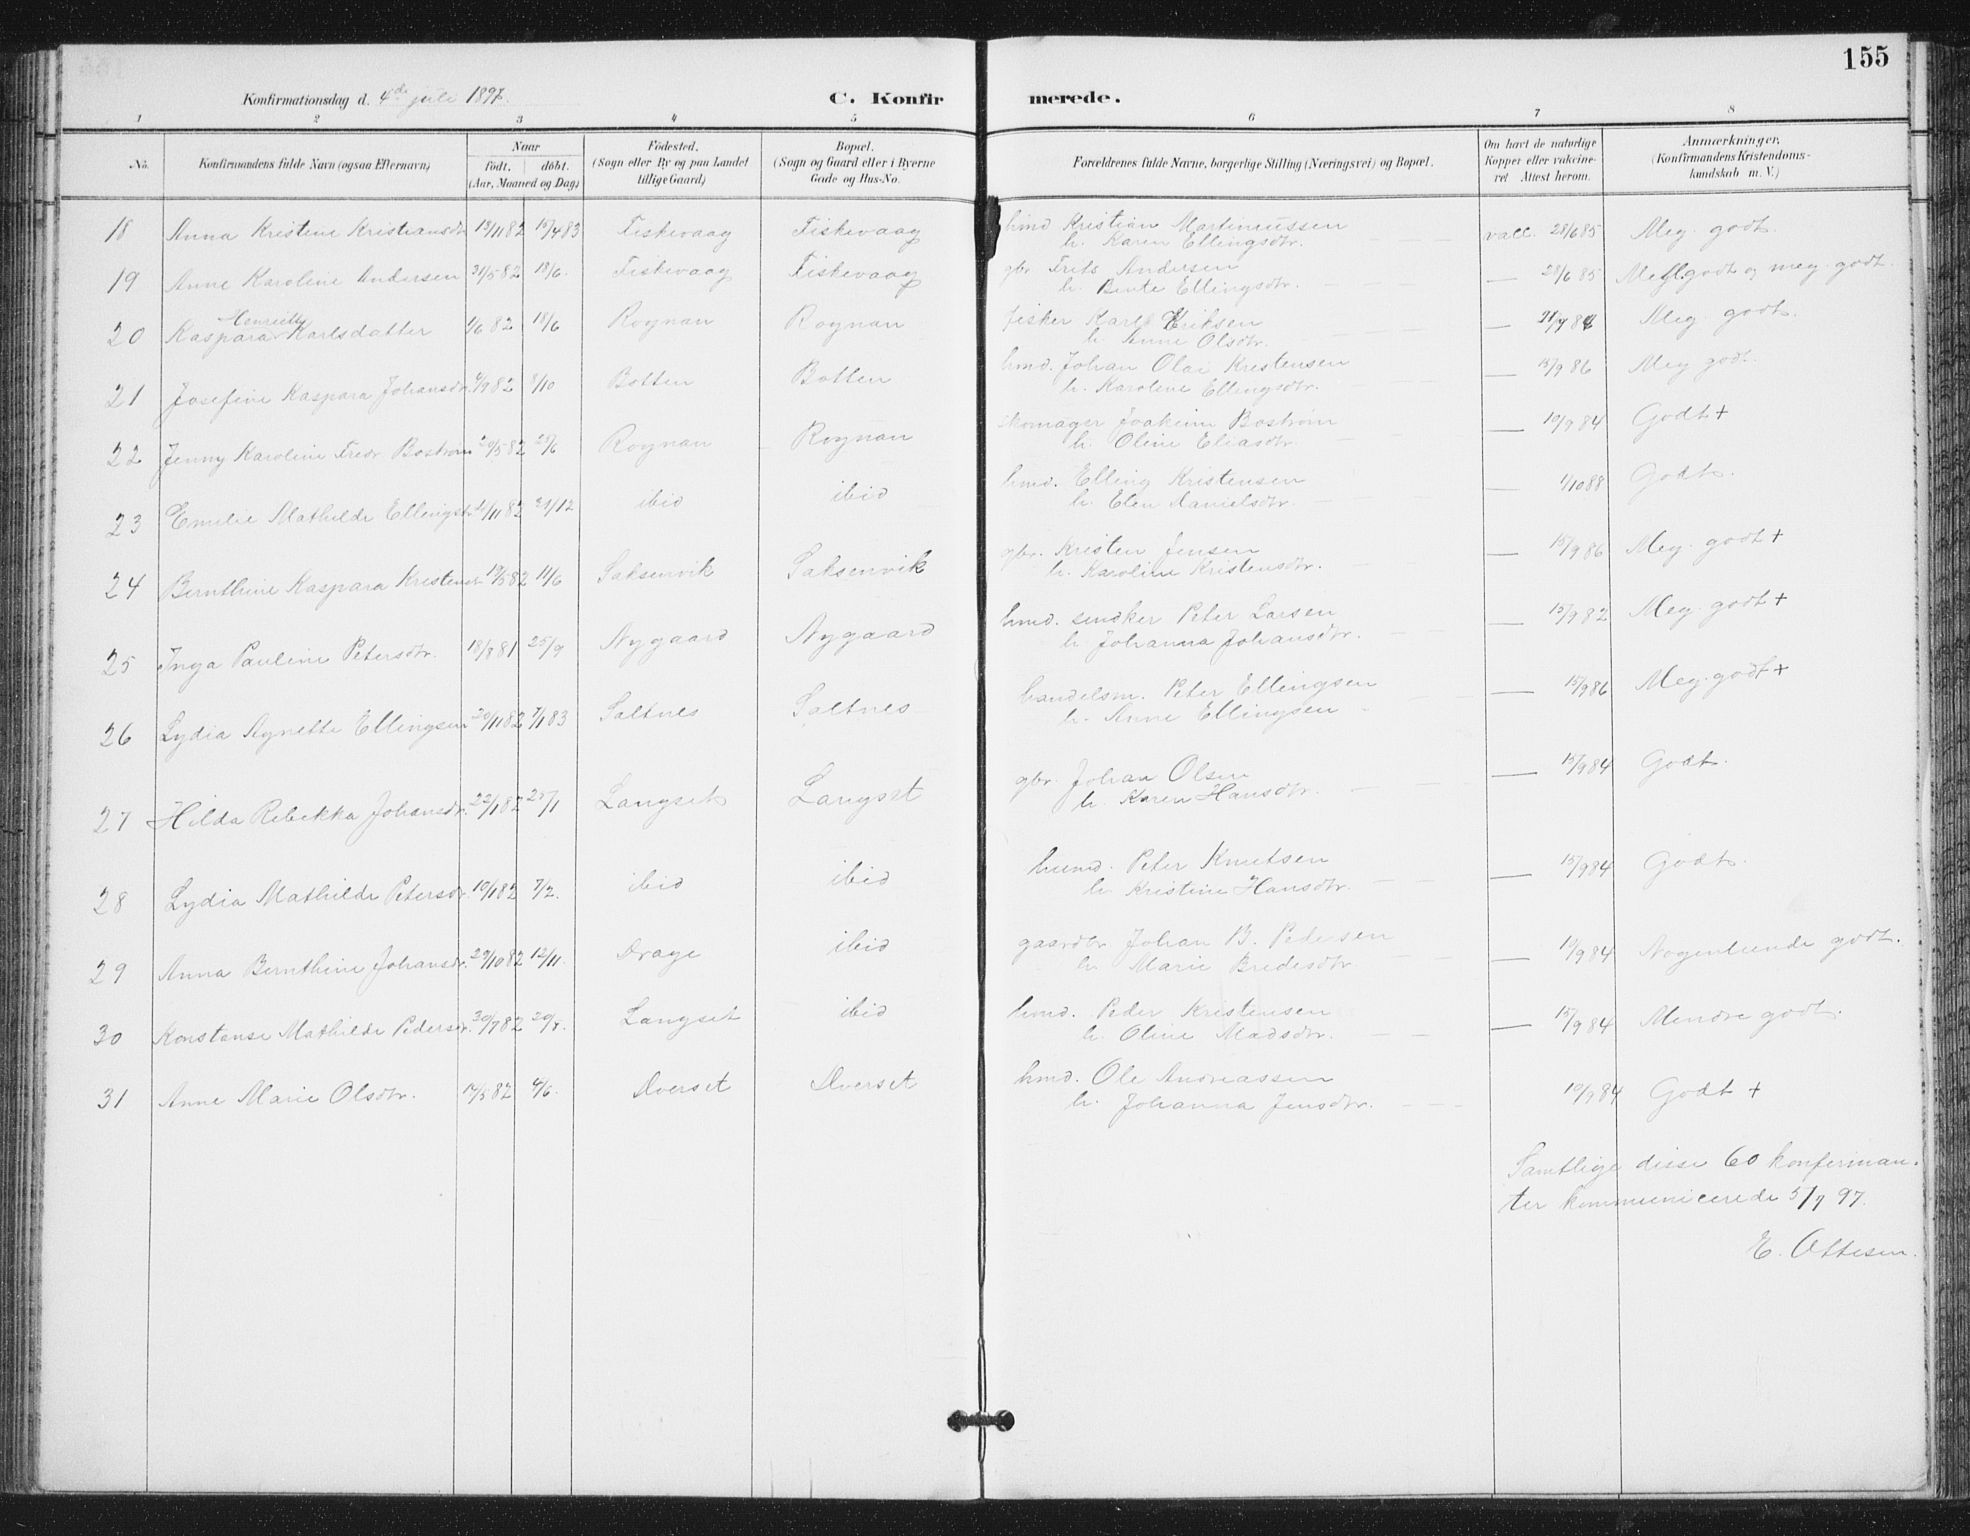 155
Konfirmationsdag d. 4de juli 1897.
C. Konfirmerede.
1 2 3 4 5 6 7 8
No. Konfirmandens fulde Navn (ogsaa Efternavn) Naar født. døbt. (Aar, Maaned og Dag) Fødested. (Sogn eller By og paa Landet tillige Gaard) Bopæl. (Sogn og Gaard eller i Byerne Gade og Hus-No. Forældrenes fulde Navne, borgerlige Stilling (Næringsvei) og Bopæl. Om havt de naturlige Kopper eller vakcineret Attest herom. Anmærkninger. (Konfirmandens Kristendomskundskab m. V.)
18 Anna Kristine Kristiansdtr 13/11 82 15/4 83 Fiskevaag Fiskevaag hmd Kristian Martinussen vacc. 28/6 85 Meg. godt.
h. Karen Ellingsdtr.
19 Anne Karoline Andersen 31/5 82 18/6. Fiskevaag Fiskevaag gbr. Frits Andersen — 28/6 85 godt og meg. godt.
h. Bente Ellingsdtr.
20 Kaspara Henriette Karlsdatter 1/6 82 18/6 Rognan Rognan fisker Karl Eriksen — Meg. godt.
h. Anne Olsdtr.
21 Josefine Kaspara Johansdtr. 4/9 82 8/10 Botten Botten hmd. Johan Olai Kristensen — 15/9 86 Meg godt.
h. Karoline Ellingsdtr.
22 Jenny Karoline Fredr Bostrøm 20/5 82 29/6 Rognan Rognan skomager Joakim Bostrøm — 10/9 84 Godt +
h. Oline Eliasdtr.
23 Emilie Mathilde Ellingsdtr /11 82 21/12 ibid ibid hmd. Elling Kristensen — 1/10 88 Godt.
h. Elen Danielsdtr.
24 Bernthine Kaspara Kristensdtr 19/5 82 11/6 Saksenvik Saksenvik gbr. Kristen Jensen — 15/9 86 Meg. godt +
h. Karoline Kristensdtr.
25 Inga Pauline Petersdtr. 18/8 81 25/9 Nygaard Nygaard hmd. Peter Larsen — 15/9 82 Meg. godt +
h. Johanna Johansdtr.
26 Lydia Agnette Ellingsen 20/11 82 7/1 83 Saltnes Saltnes handelsm. Peter Ellingsen — 15/9 86 Meg. godt +
h. Anne Ellingsen
27 Hilda Rebekka Johansdtr. 22/1 82 25/1 Langset Langset gbr. Johan Olsen — 15/9 84 Godt.
h. Karen Hansdtr.
28 Lydia Mathilde Petersdtr. 10/1 82 7/2. ibid ibid husmd. Peter Knutsen — 15/9 84 Godt.
h. Kristine Hansdtr.
29 Anna Bernthine Johansdtr. 29/10 82 12/11. Drage ibid gaardbr Johan B. Pedersen — 15/9 84 Nogenlunde godt.
h. Marie Bredesdtr
30 Konstanse Mathilde Pedersdtr. 30/7 82 20/8. Langset ibid hmd. Peder Kristensen — 15/9 84 Mindre godt.
h. Oline Madsdtr.
31 Anne Marie Olsdtr. 14/5 82 4/6. Dverset Dverset hmd. Ole Andreassen 10/9 84 Godt +
h. Johanna Jensdtr.
Samtlige disse 60 konfirman-
ter kommunicerede 5/7 97.
E. Ottesen.